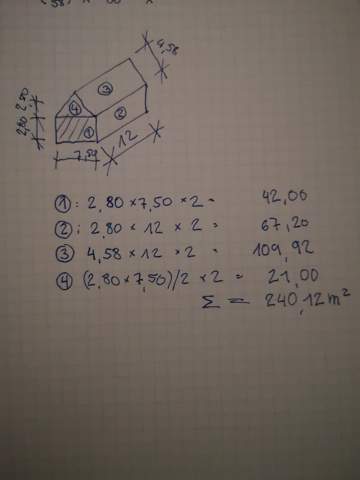 4,58
3
2,50
4
2
2,80
1
12
7,50
1 : 2,80 × 7,50 × 2 = 42,00
2 : 2,80 × 12 × 2 = 67,20
3 4,58 × 12 × 2 = 109,92
4 (2,80 × 7,50)/2 × 2 = 21,00
Σ = 240,12 m²